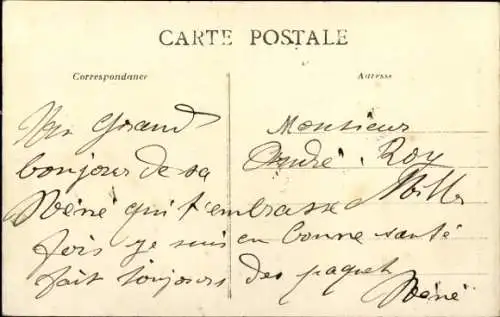 CARTE POSTALE
Correspondance
Adresse
Un Grand
bonjour de sa
Réné qui t'embrasse Mille
fois je suis en bonne santé
fait toujours des paquet
Réné
Monsieur
André Roy